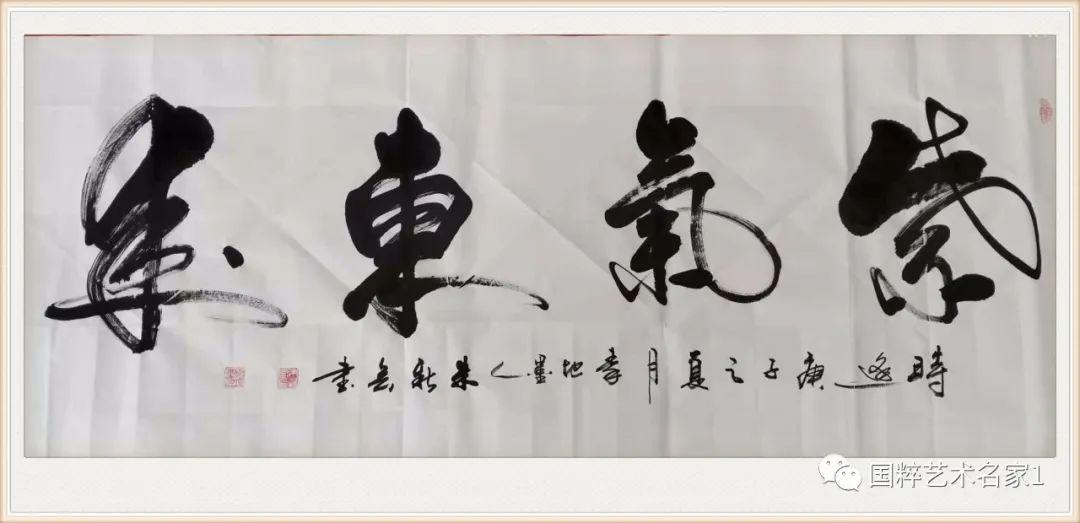 紫氣東來
時逢庚子之夏月孝地墨人朱書
国粹艺术名家1